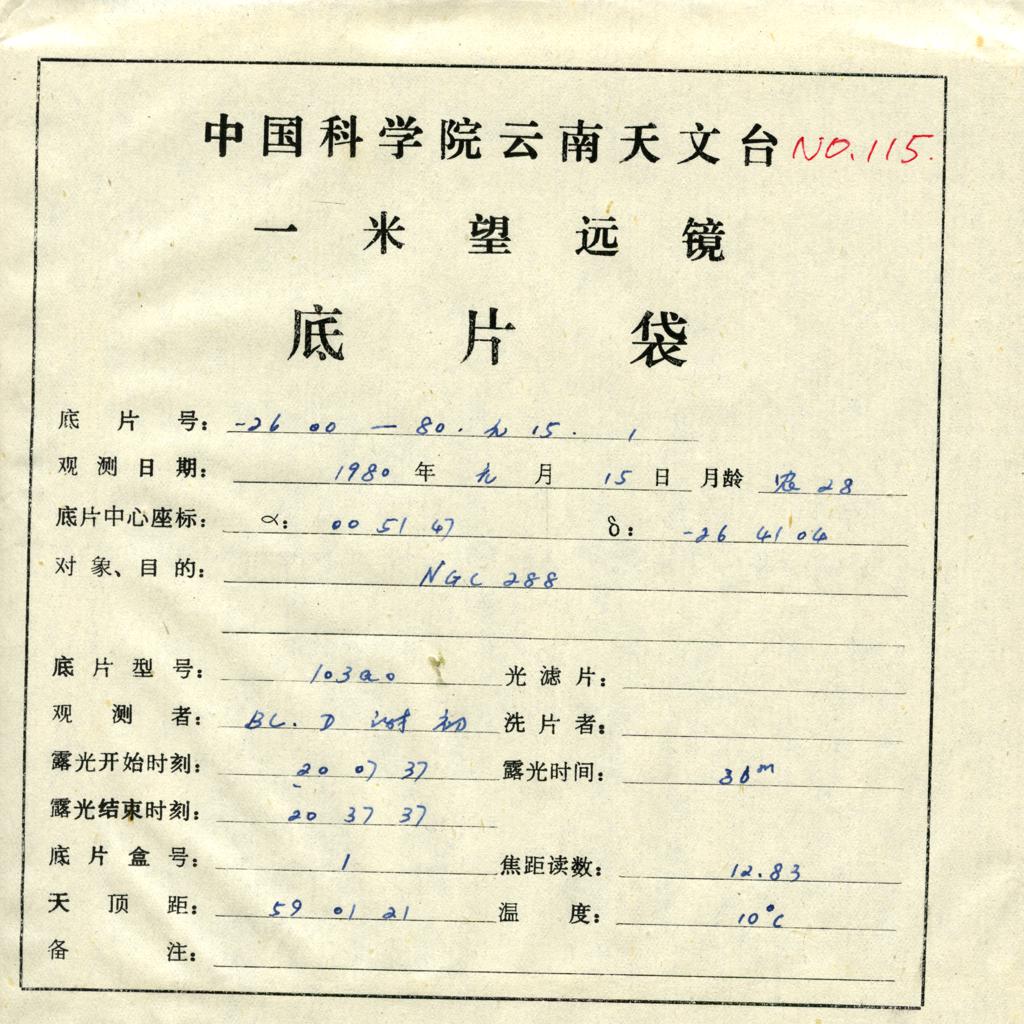 中国科学院云南天文台 NO.115.
一米望远镜
底片袋
底片号: -26 00 — 80. 九 15. 1
观测日期: 1980 年 九 月 15 日 月龄 农 28
底片中心座标: α: 00 51 47 δ: -26 41 04
对象、目的: NGC 288
底片型号: 103aO 光滤片:
观测者: BC. D 谢 初 洗片者:
露光开始时刻: 20 07 37 露光时间: 30m
露光结束时刻: 20 37 37
底片盒号: 1 焦距读数: 12.83
天顶距: 59 01 21 温度: 10°C
备注: